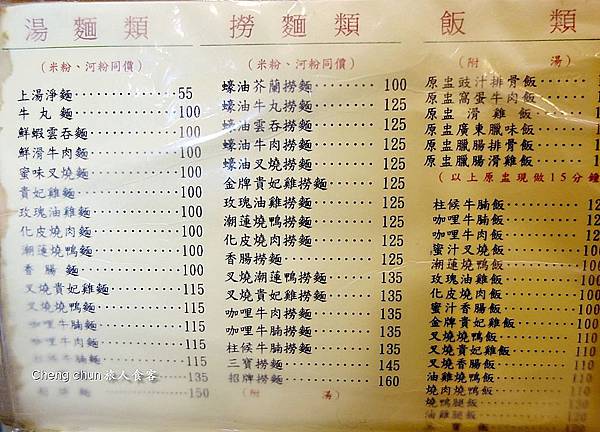 湯麵類
(米粉、河粉同價)
上湯淨麵 55
牛丸麵 100
鮮蝦雲吞麵 100
鮮滑牛肉麵 100
蜜味叉燒麵 100
貴妃雞麵 100
玫瑰油雞麵 100
化皮燒肉麵 100
潮蓮燒鴨麵 100
香腸麵 100
叉燒貴妃雞麵 115
叉燒燒鴨麵 115
咖哩牛腩麵 115
咖哩牛肉麵 115
115
135
150
撈麵類
(米粉、河粉同價)
蠔油芥蘭撈麵 100
蠔油牛丸撈麵 125
蠔油雲吞撈麵 125
蠔油牛肉撈麵 125
蠔油叉燒撈麵 125
金牌貴妃雞撈麵 125
玫瑰油雞撈麵 125
潮蓮燒鴨撈麵 125
化皮燒肉撈麵 125
香腸撈麵 125
叉燒潮蓮燒鴨撈麵 135
叉燒貴妃雞撈麵 135
咖哩牛肉撈麵 135
咖哩牛腩撈麵 135
柱候牛腩撈麵 135
三寶撈麵 145
招牌撈麵 160
(附湯)
飯類
(附湯)
原盅豉汁排骨飯
原盅窩蛋牛肉飯
原盅滑雞飯
原盅廣東臘味飯
原盅臘腸排骨飯
原盅臘腸滑雞飯
(以上原盅現做15分鐘
柱候牛腩飯
咖哩牛腩飯
咖哩牛肉飯
蜜汁叉燒飯 100
潮蓮燒鴨飯 100
玫瑰油雞飯 100
化皮燒肉飯 100
蜜汁香腸飯 100
金牌貴妃雞飯 100
叉燒燒鴨飯 110
叉燒貴妃雞飯 110
叉燒香腸飯 110
油雞燒鴨飯 110
燒肉燒鴨飯 110
燒鴨腿飯
油雞腿飯
三寶飯
Cheng chun旅人食客